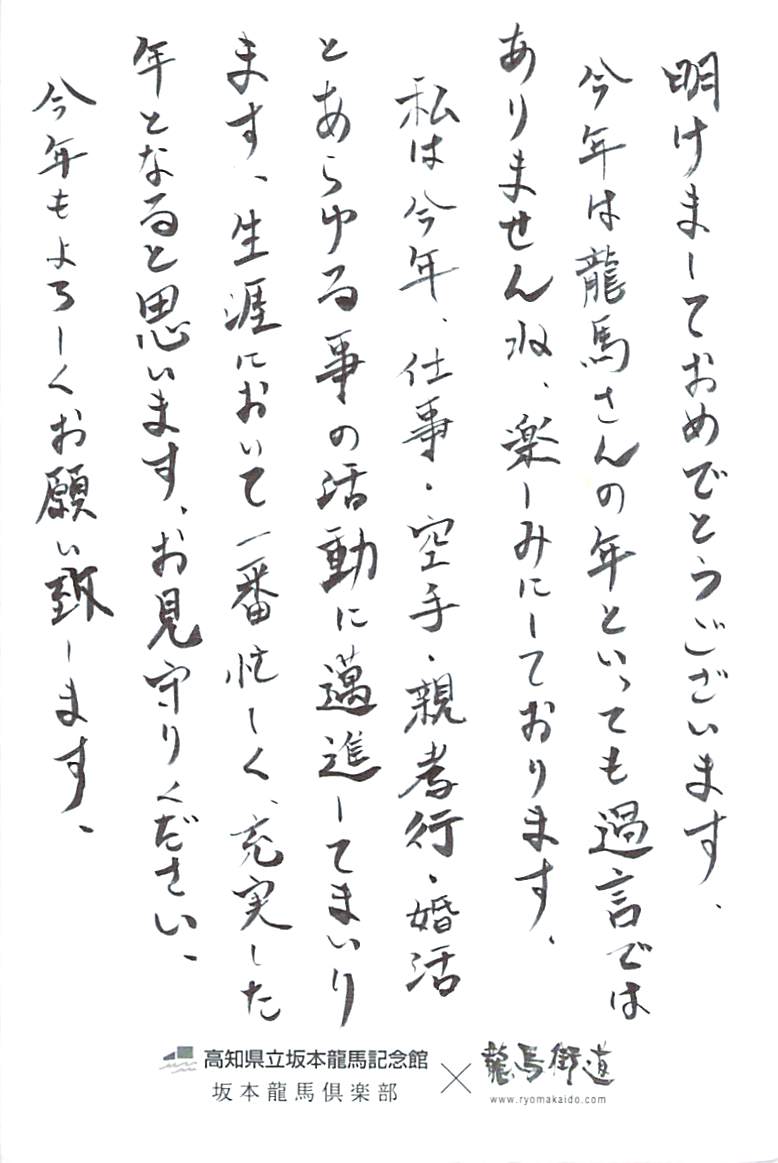 明けましておめでとうございます、
今年は龍馬さんの年といっても過言では
ありませんね、楽しみにしております、
私は今年、仕事・空手・親孝行・婚活
とあらゆる事の活動に邁進してまいり
ます、生涯において一番忙しく、充実した
年となると思います、お見守りください、
今年もよろしくお願い致します、
高知県立坂本龍馬記念館
坂本龍馬倶楽部
×
龍馬街道
www.ryomakaido.com